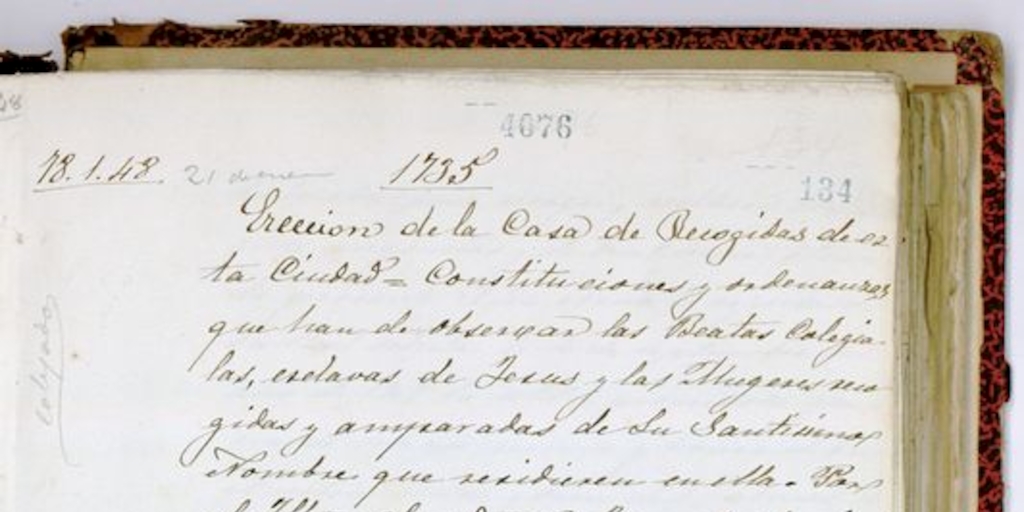 4076
18.1.48. 21 1735
134
Ereccion de la Casa de Recogidas de es
ta Ciudad = Constituciones y ordenanzas
que han de observar las Beatas Colegia-
las, esclavas de Jesus y las Mugeres reco
gidas y amparadas de Su Santisimo
Nombre que residieren en ella. Por
cotejado